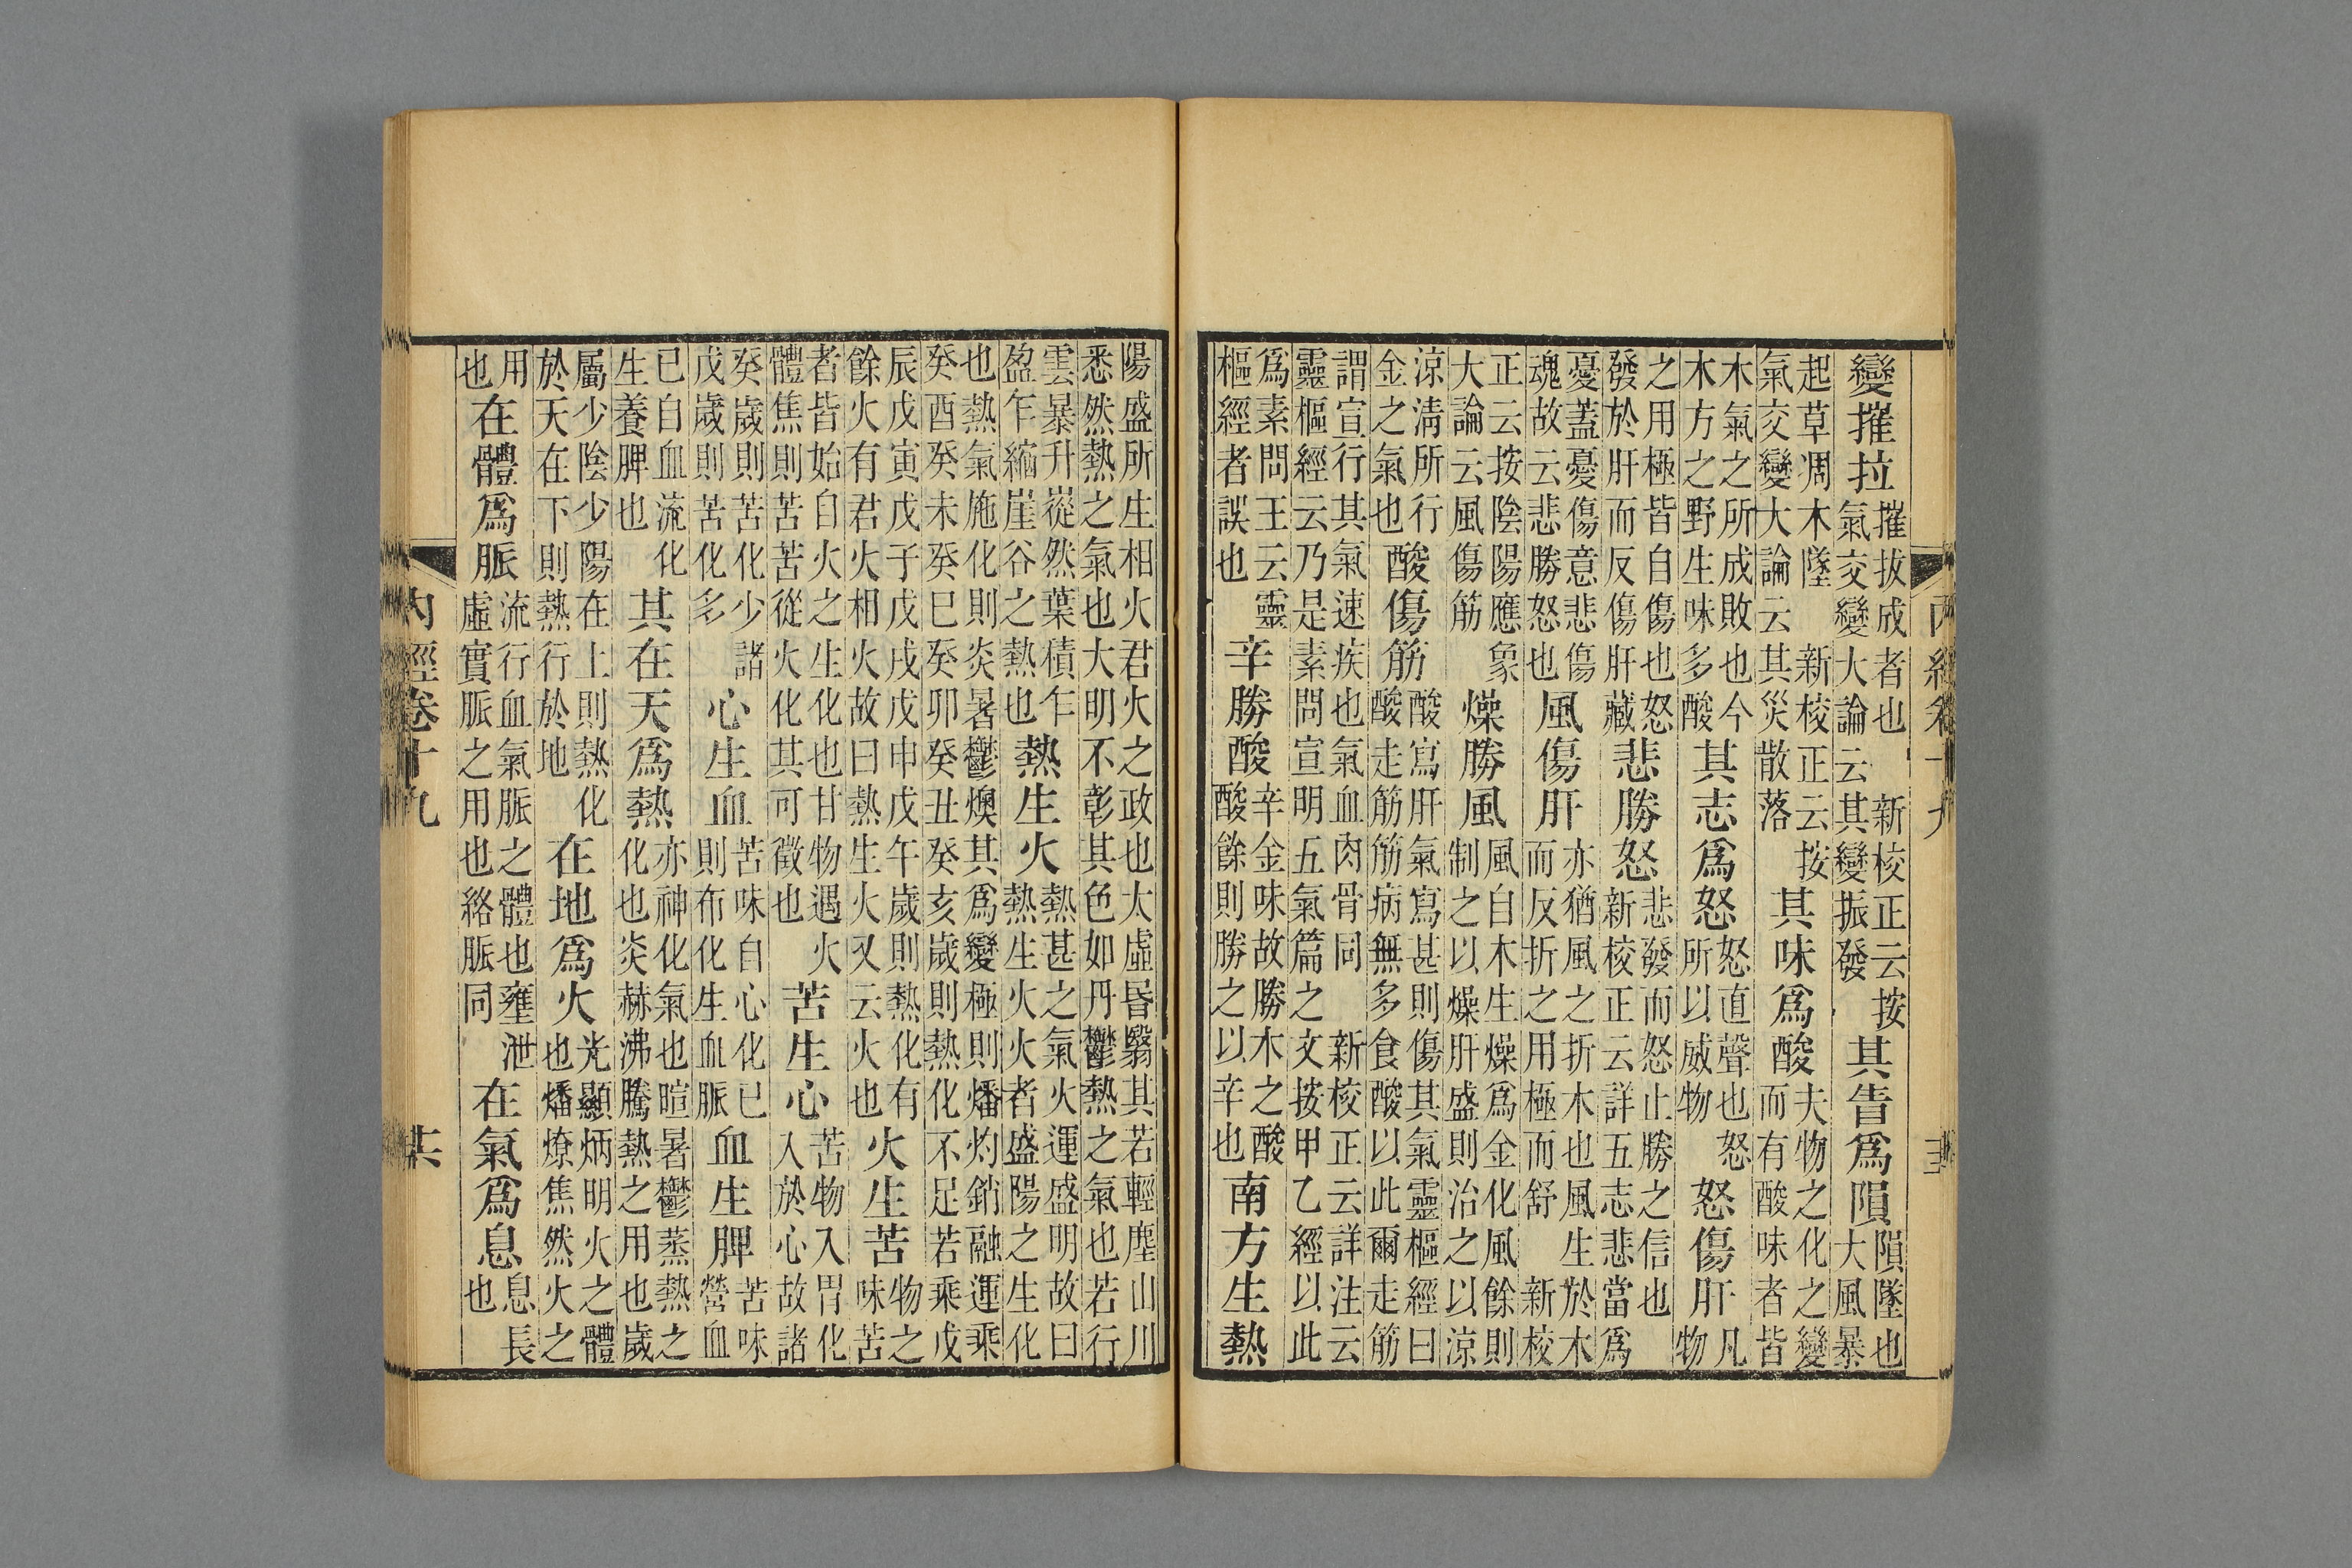 變摧拉摧拔成者也 新校正云按氣交變大論云其變振發其眚爲隕隕墜也大風暴
起草凋木墜 新校正云按氣交變大論云其災散落其味爲酸夫物之化之變而有酸味者皆
木氣之所成敗也今木方之野生味多酸其志爲怒怒直聲也怒所以威物怒傷肝凡物
之用極皆自傷也怒發於肝而反傷肝藏悲勝怒悲發而怒止勝之信也新校正云詳五志悲當爲
憂蓋憂傷意悲傷魂故云悲勝怒也風傷肝亦猶風之折木也風生於木而反折之用極而舒 新校
正云按陰陽應象大論云風傷筋燥勝風風自木生燥爲金化風餘則制之以燥肝盛則治之以涼
涼清所行金之氣也酸傷筋酸寫肝氣寫甚則傷其氣靈樞經曰酸走筋筋病無多食酸以此爾走筋
謂宣行其氣速疾也氣血肉骨同 新校正云詳注云靈樞經云乃是素問宣明五氣篇之文按甲乙經以此
爲素問王云靈樞經者誤也辛勝酸辛金味故勝木之酸酸餘則勝之以辛也南方生熱
陽盛所生相火君火之政也太虛昬翳其若輕塵山川悉然熱之氣也大明不彰其色如丹鬱熱之氣也若行
雲暴升從然葉積乍盈乍縮崖谷之熱也熱生火熱甚之氣火運盛明故曰熱生火火者盛陽之生化
也熱氣施化則炎暑鬱燠其爲變極則燔灼銷融運乘癸酉癸未癸巳癸卯癸丑癸亥歲則熱化不足若乘戊
辰戊寅戊子戊戌戊申戊午歲則熱化有餘火有君火相火故曰熱生火又云火也火生苦物之味苦
者皆始自火之生化也甘物遇火體焦則苦苦從火化其可徵也苦生心苦物入胃化入於心故諸
癸歲則苦化少諸戊歲則苦化多心生血苦味自心化已則布化生血脈血生脾苦味營血
已自血流化生養脾也其在天爲熱亦神化氣也暄暑鬱蒸熱之化也炎赫沸騰熱之用也歲
屬少陰少陽在上則熱化於天在下則熱行於地在地爲火光顯炳明火之體也燔燎焦然火之
用也在體爲脈流行血氣脈之體也壅泄虛實脈之用也絡脈同在氣爲息息長也
內經卷十九